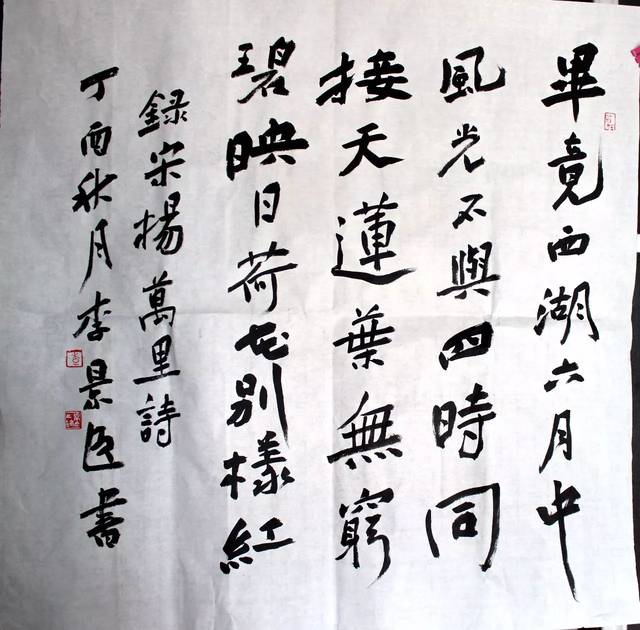 畢竟西湖六月中
風光不與四時同
接天蓮葉無窮
碧映日荷花別樣紅
錄宋楊萬里詩
丁酉秋月李景 書